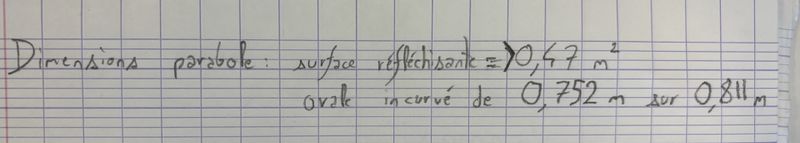 Dimensions parabole : surface réfléchisante => 0,47 m²
ovale incurvé de 0,752 m sur 0,811 m